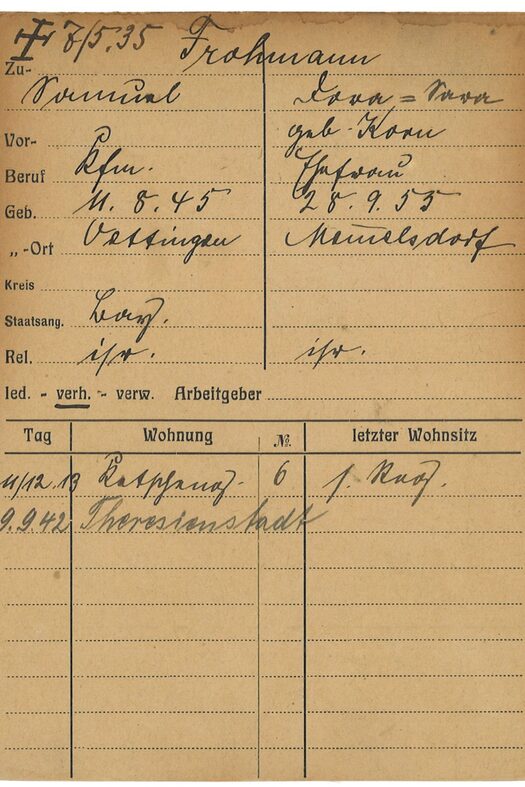 ✝ 7/5.35 Frohmann
Zu-
Samuel Dora = Sara
geb. Korn
Vor-
Beruf Kfm. Ehefrau
Geb. 11. 8. 45 28. 9. 55
„-Ort Oettingen Memmelsdorf
Kreis
Staatsang. Bay.
Rel. isr. isr.
led. - verh. - verw. Arbeitgeber
Tag Wohnung № letzter Wohnsitz
11/12 13 6 s. Bog.
9.9.42 Theresienstadt